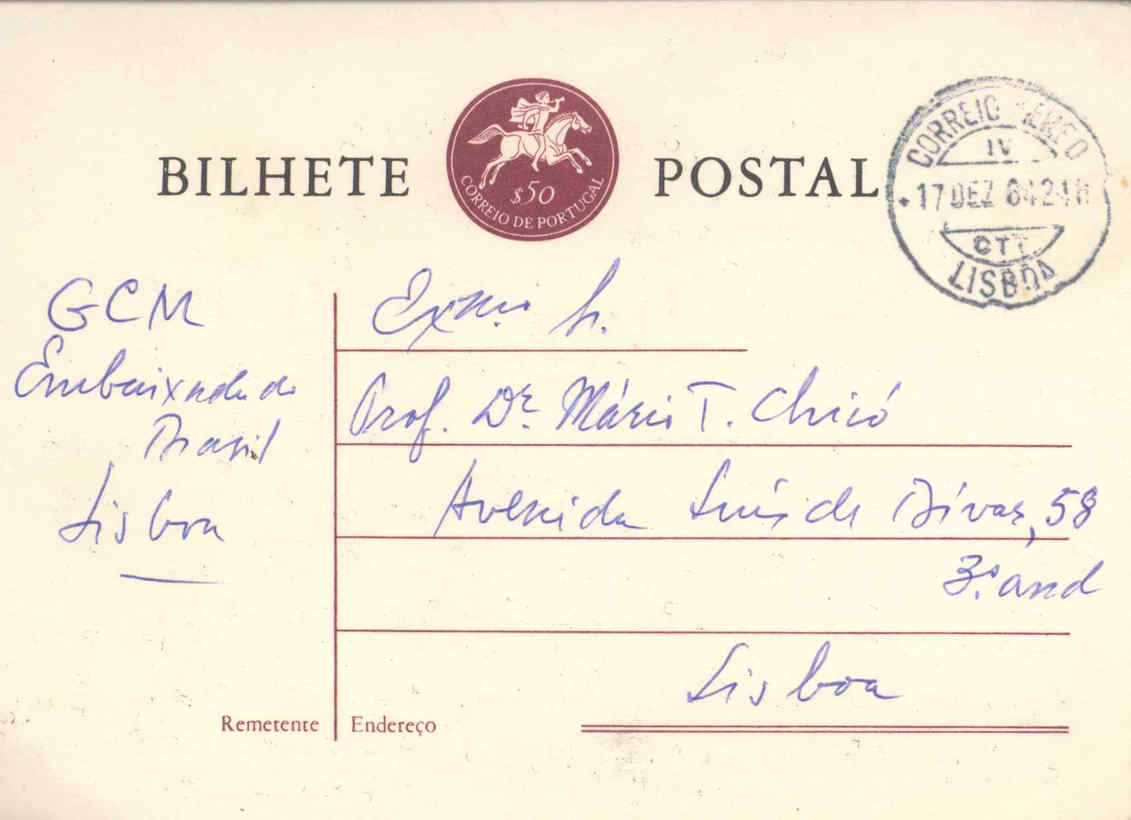 BILHETE POSTAL
$50
CORREIO DE PORTUGAL
CORREIO AEREO
IV
17 DEZ 64 24H
CTT
LISBOA
GCM
Embaixada do
Brasil
Lisboa
Remetente
Exmo Sr.
Prof. Dr. Mário T. Chicó
Avenida Luís de Bívar, 58
3.º and
Lisboa
Endereço